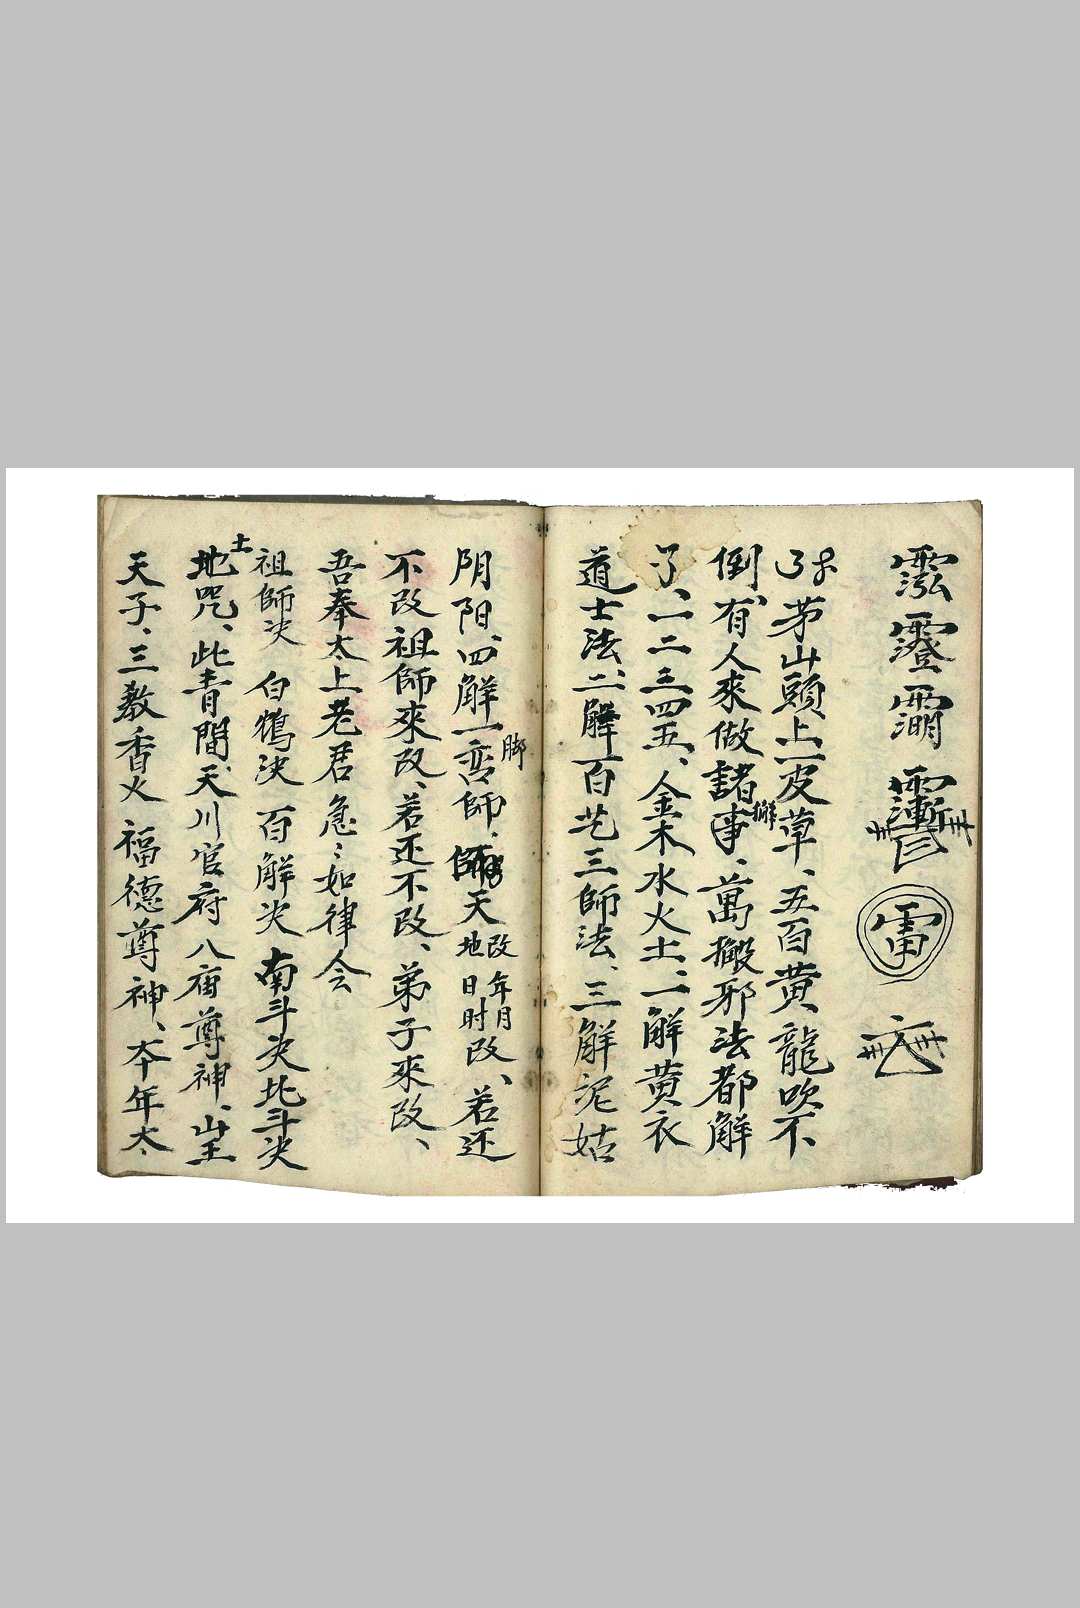 雷
茅山頭上一皮草、五百黄龍吹不
倒、有人來做諸事、萬搬邪法都解
了、一二三四五、金木水火土、一解黄衣
道士法、二解百艺三師法、三解泥姑
阴阳、四解一蛮師、天地改年月日时改、若还
脚
不改祖師來改、若还不改、弟子來改、
吾奉太上老君急〻如律令
祖師决 白鶴决 百解决 南斗决北斗决
土地咒、此青間天川官府八庙尊神、山王
天子、三教香火 福德尊神、本年太